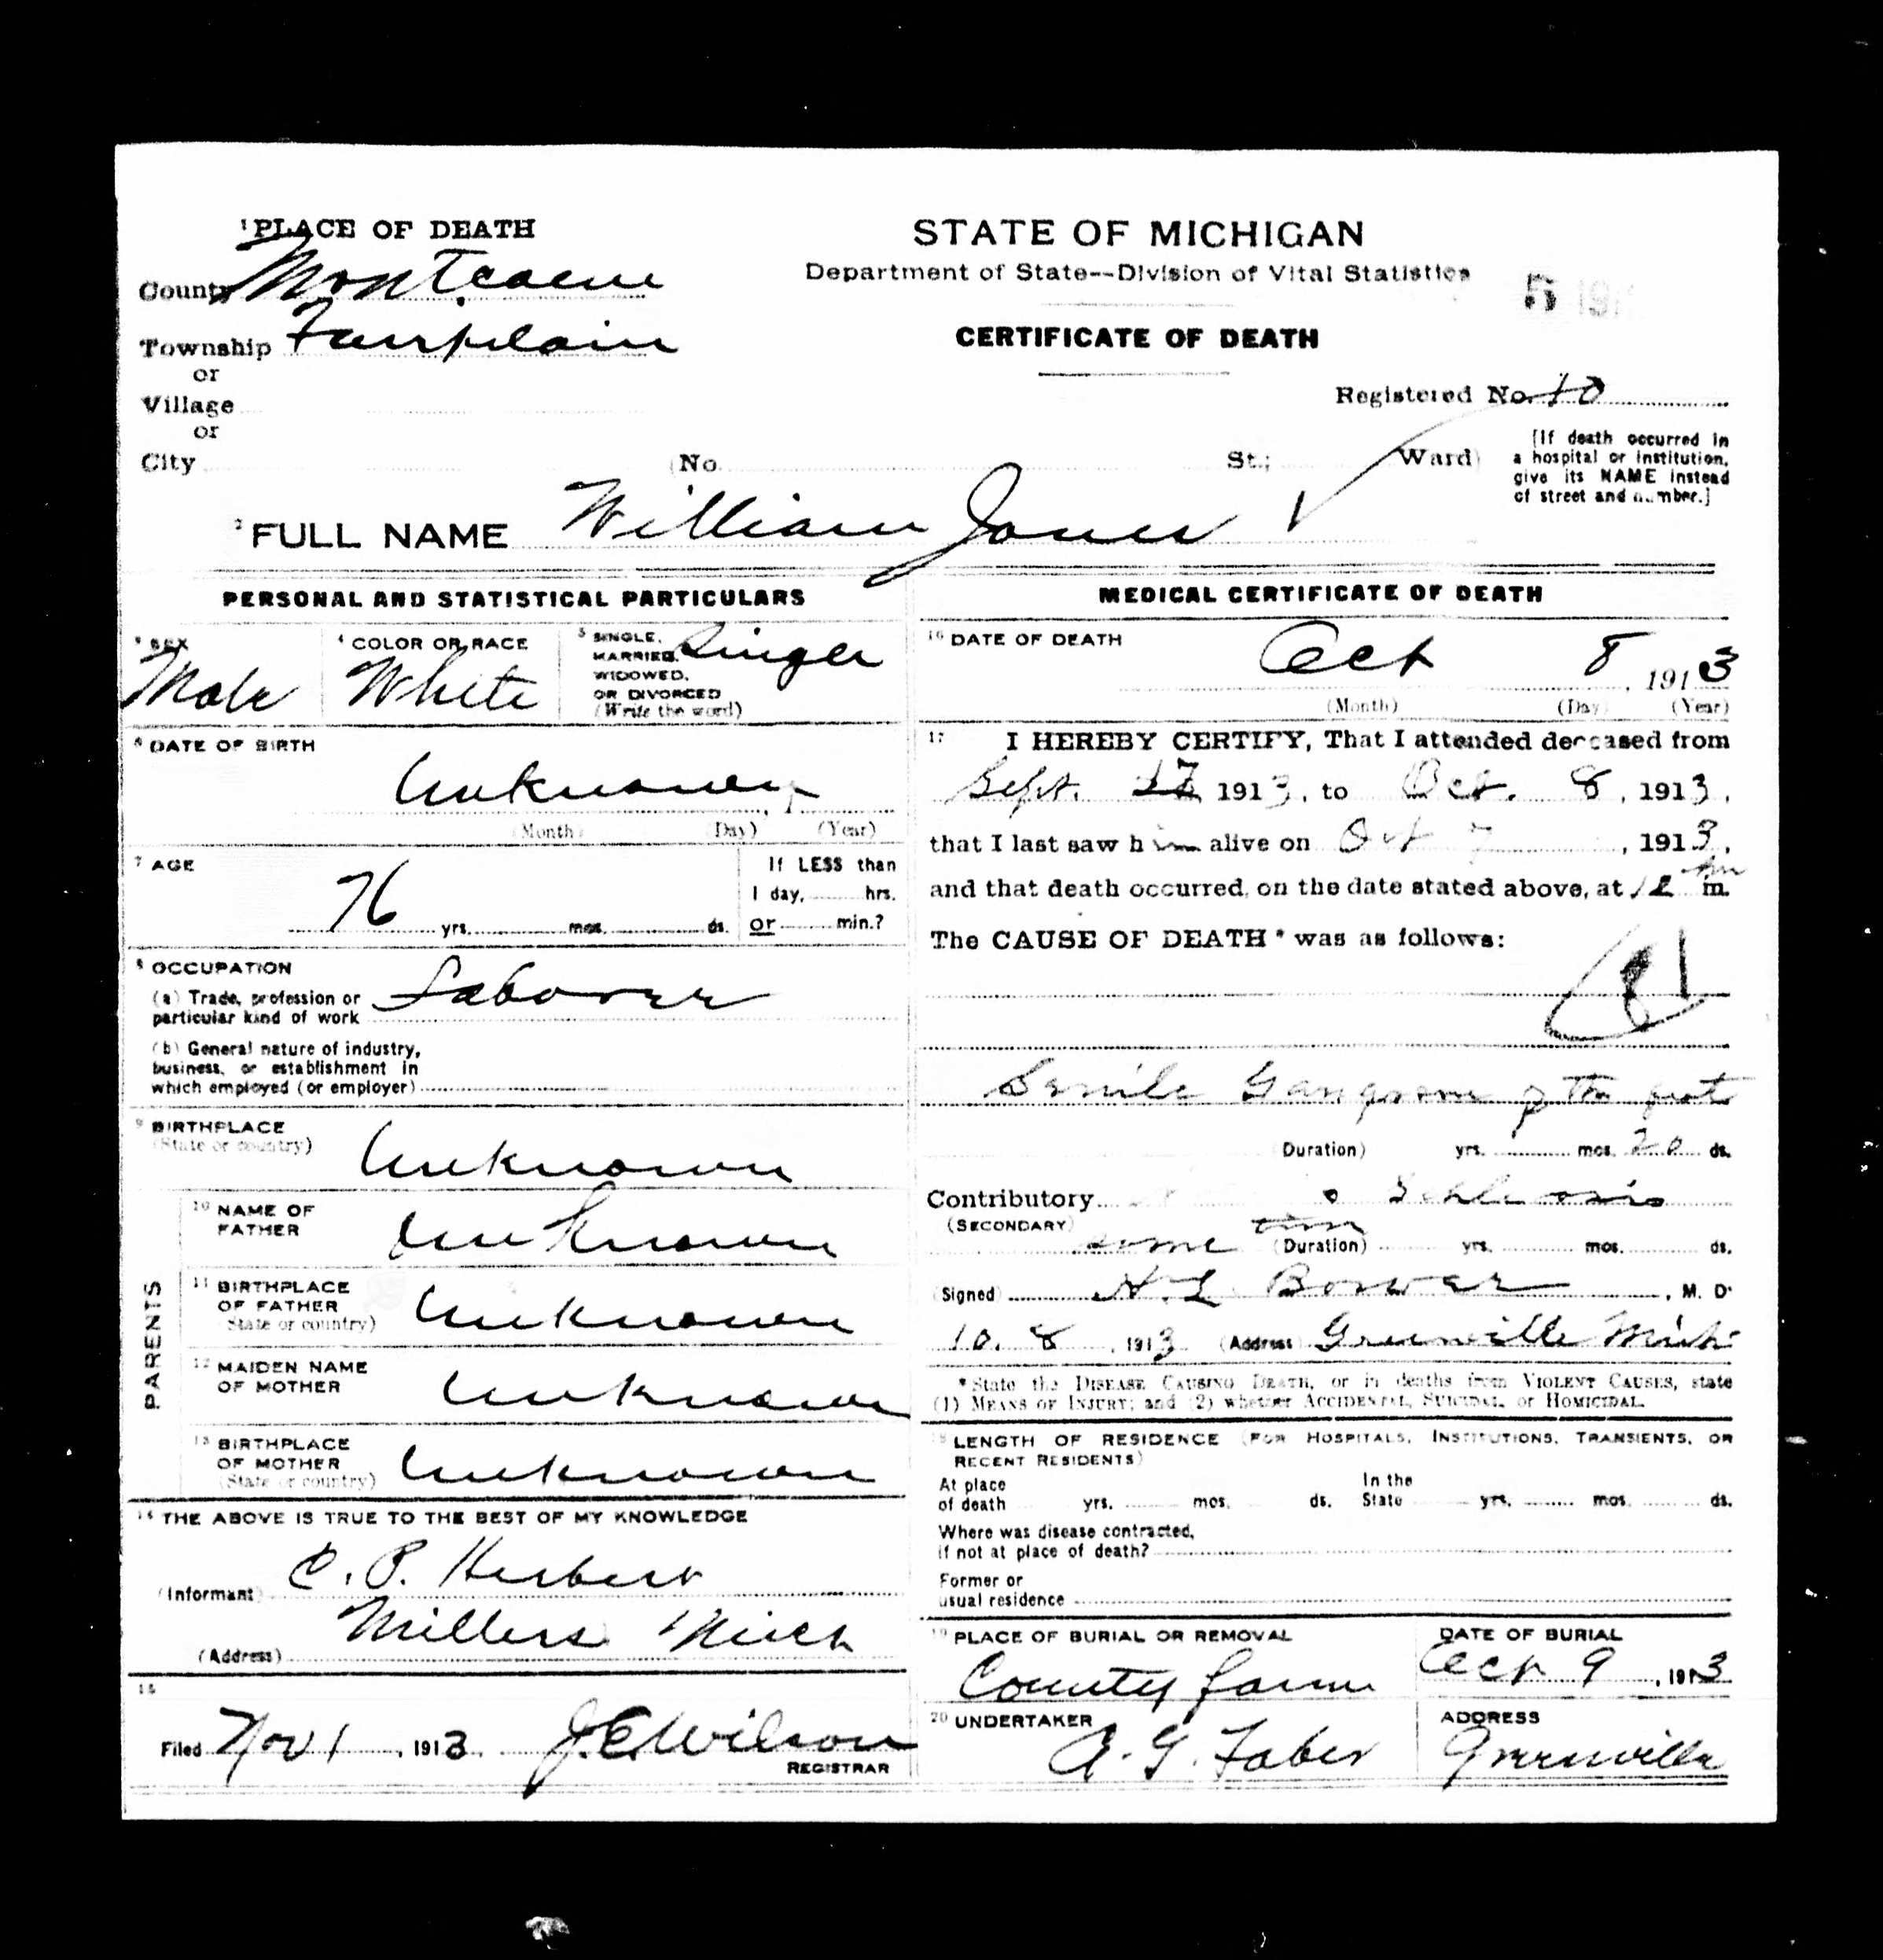 1 PLACE OF DEATH
County Montcalm
Township Fairplain
or
Village
or
City (No. St.; Ward)
STATE OF MICHIGAN
Department of State--Division of Vital Statistics
5 191
CERTIFICATE OF DEATH
Registered No. 10
[If death occurred in
a hospital or institution,
give its NAME instead
of street and number.]
2 FULL NAME William Jones
PERSONAL AND STATISTICAL PARTICULARS
3 SEX
Male
4 COLOR OR RACE
White
5 SINGLE,
MARRIED,
WIDOWED,
OR DIVORCED
(Write the word)
Single
6 DATE OF BIRTH
Unknown, 1
(Month) (Day) (Year)
7 AGE
76 yrs. mos. ds.
If LESS than
1 day, hrs.
or min.?
8 OCCUPATION
(a) Trade, profession or
particular kind of work
Laborer
(b) General nature of industry,
business, or establishment in
which employed (or employer)
9 BIRTHPLACE
(State or country)
Unknown
PARENTS
10 NAME OF
FATHER
Unknown
11 BIRTHPLACE
OF FATHER
(State or country)
Unknown
12 MAIDEN NAME
OF MOTHER
Unknown
13 BIRTHPLACE
OF MOTHER
(State or country)
Unknown
14 THE ABOVE IS TRUE TO THE BEST OF MY KNOWLEDGE
(Informant) C. P. Herbert
(Address) Millers Mich
15
Filed Nov 1, 1913. J.E. Wilson
REGISTRAR
MEDICAL CERTIFICATE OF DEATH
16 DATE OF DEATH
Oct 8, 1913
(Month) (Day) (Year)
17 I HEREBY CERTIFY, That I attended deceased from
Sept. 1913, to Oct. 8, 1913,
that I last saw him alive on Oct 7, 1913,
and that death occurred, on the date stated above, at 12 m.
The CAUSE OF DEATH* was as follows:
Senile Gangrene of the feet
(Duration) yrs. mos. 20 ds.
Contributory
(SECONDARY)
some time (Duration) yrs. mos. ds.
(Signed) H. L. Bower, M. D.
10. 8, 1913 (Address) Greenville Mich
*State the DISEASE CAUSING DEATH, or in deaths from VIOLENT CAUSES, state
(1) MEANS OF INJURY; and (2) whether ACCIDENTAL, SUICIDAL, or HOMICIDAL.
18 LENGTH OF RESIDENCE (FOR HOSPITALS, INSTITUTIONS, TRANSIENTS, OR
RECENT RESIDENTS)
At place
of death yrs. mos. ds.
In the
State yrs. mos. ds.
Where was disease contracted,
if not at place of death?
Former or
usual residence
19 PLACE OF BURIAL OR REMOVAL
County farm
DATE OF BURIAL
Oct 9, 1913
20 UNDERTAKER
A. G. Faber
ADDRESS
Greenville